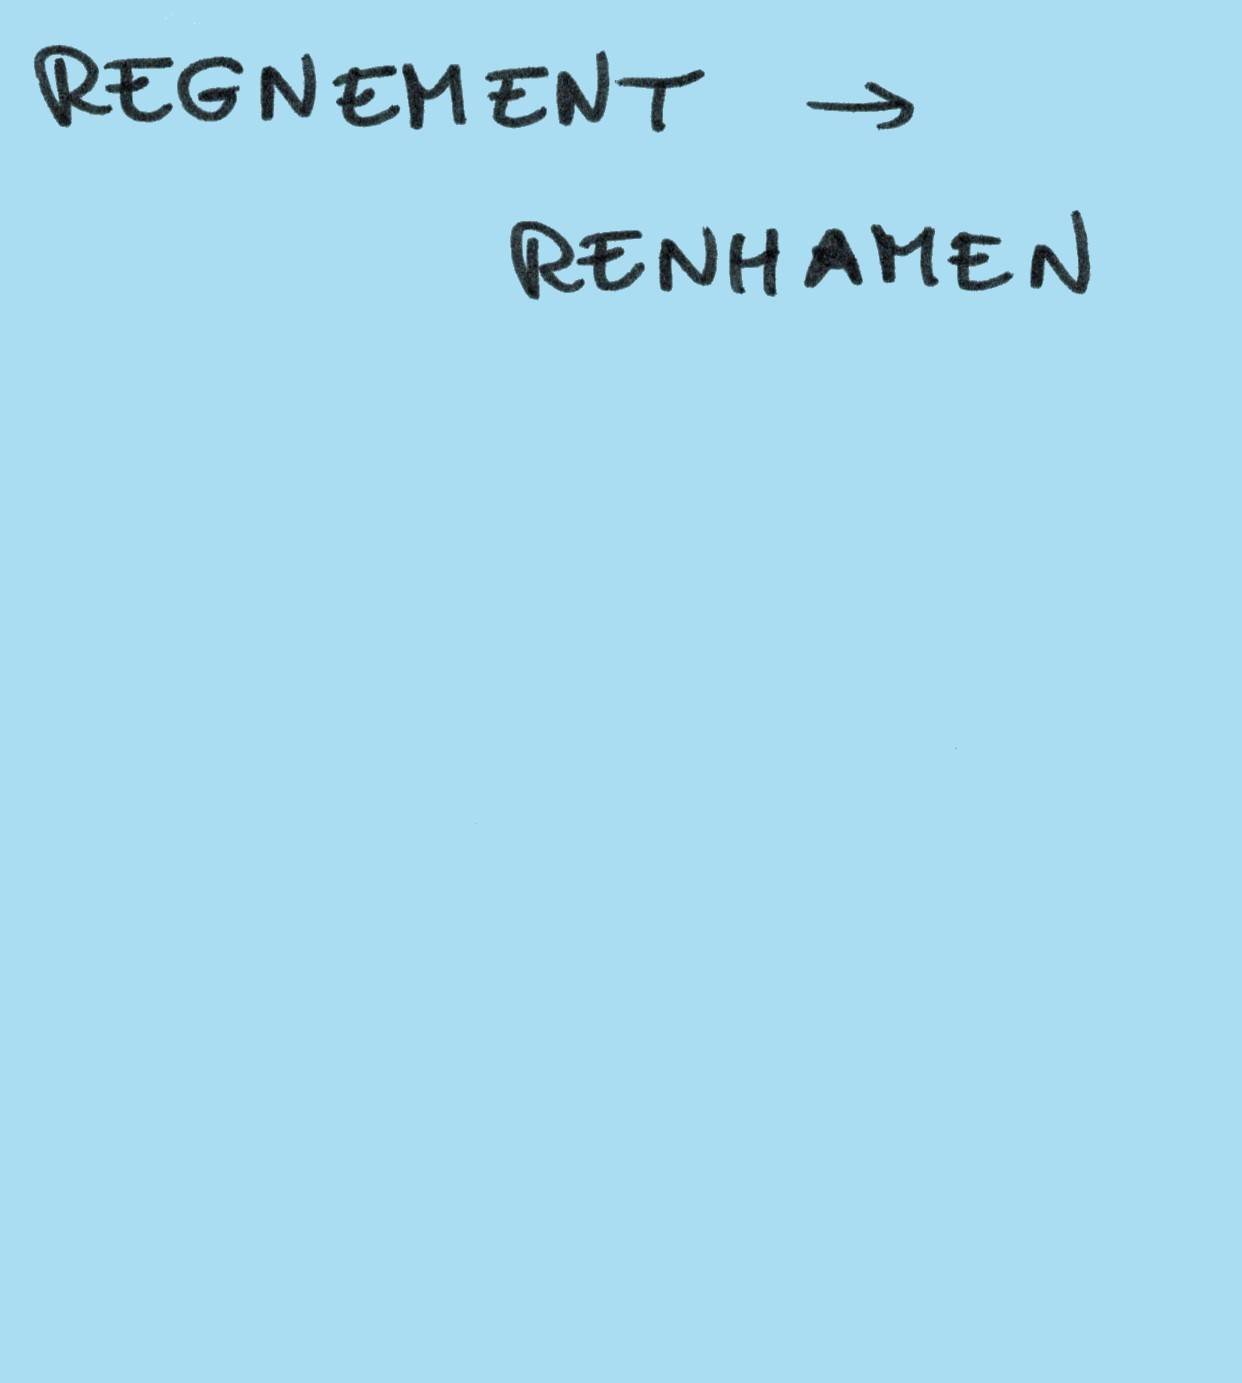 REGNEMENT →
RENHAMEN